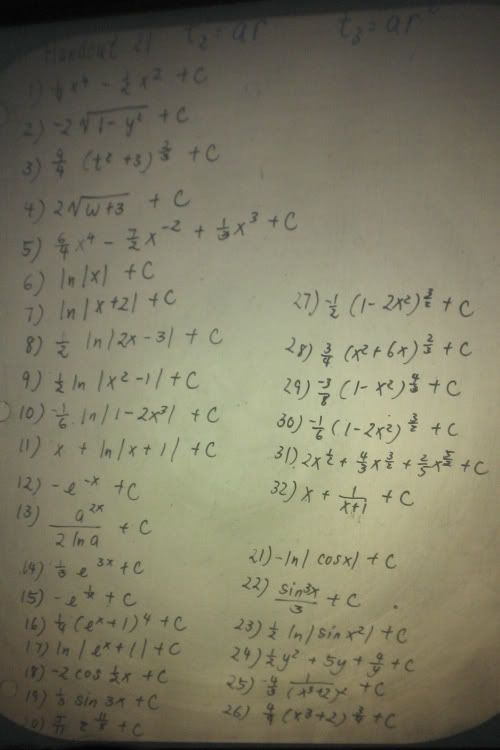 Handout 21 t₂ = ar t₃ = ar
1) ¼x⁴ - ½x² + C
2) -2√(1-y²) + C
3) 9/4 (t² + 3)^(2/3) + C
4) 2√(w+3) + C
5) 6/4 x⁴ - 7/2 x⁻² + ⅓x³ + C
6) ln|x| + C
7) ln|x+2| + C
8) ½ ln|2x-3| + C
9) ½ ln|x²-1| + C
10) -1/6 ln|1-2x³| + C
11) x + ln|x+1| + C
12) -e^(-x) + C
13) a^(2x)/(2 ln a) + C
14) ⅓ e^(3x) + C
15) -e^(1/x) + C
16) ¼(eˣ+1)⁴ + C
17) ln|eˣ+1| + C
18) -2 cos ½x + C
19) ⅓ sin 3x + C
20) 5/11 z^(11/5) + C
27) -½ (1-2x²)^(3/2) + C
28) ¾ (x²+6x)^(2/3) + C
29) -3/8 (1-x²)^(4/3) + C
30) -1/6 (1-2x²)^(3/2) + C
31) 2x^(1/2) + 4/3 x^(3/2) + 2/5 x^(5/2) + C
32) x + 1/(x+1) + C
21) -ln|cosx| + C
22) sin3x/3 + C
23) ½ ln|sin x²| + C
24) ½y² + 5y + 4/y + C
25) -4/3 1/(x³+2) + C
26) 4/9 (x³+2)^(3/4) + C